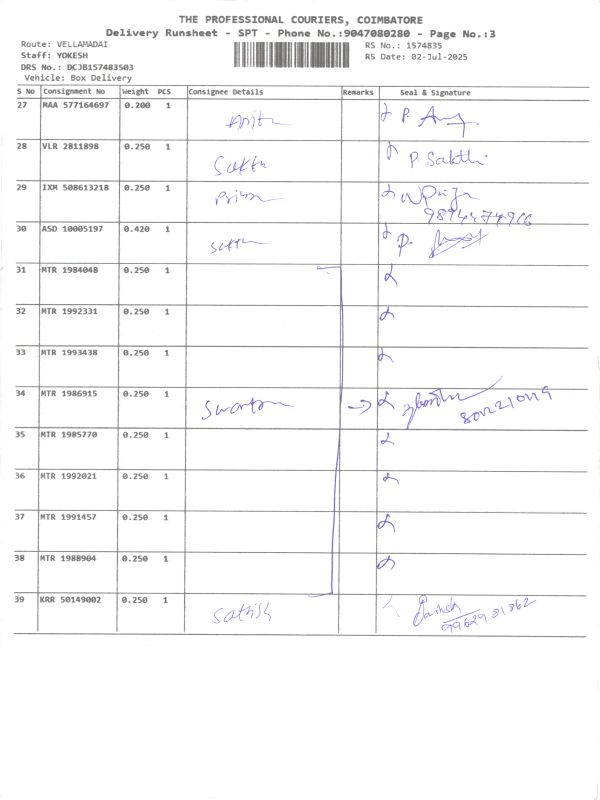 THE PROFESSIONAL COURIERS, COIMBATORE
Delivery Runsheet - SPT - Phone No.:9047080280 - Page No.:3
Route: VELLAMADAI
RS No.: 1574835
Staff: YOKESH
RS Date: 02-Jul-2025
DRS No.: DCJB157483503
Vehicle: Box Delivery
S No Consignment No Weight PCS Consignee Details Remarks Seal & Signature
27 MAA 577164697 0.200 1 P.
28 VLR 2811898 0.250 1 Sakthi P Sakthi
29 IXM 508613218 0.250 1 Priya Priya
30 ASD 10005197 0.420 1 P.
31 MTR 1984048 0.250 1
32 MTR 1992331 0.250 1
33 MTR 1993438 0.250 1
34 MTR 1986915 0.250 1
35 MTR 1985770 0.250 1
36 MTR 1992021 0.250 1
37 MTR 1991457 0.250 1
38 MTR 1988904 0.250 1
39 KRR 50149002 0.250 1 Sathish
9962981862